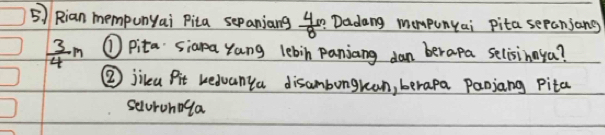 5) Rian mempunyai Pita sepanjang 4/8 m. Dadang mempunyai Pita sepanjang
3/4 m ① Pita siapa yang lebih panjang dan berapa selisihnya?
② jika Pit keduanya disambungkan, berapa panjang Pita
seluruhnya